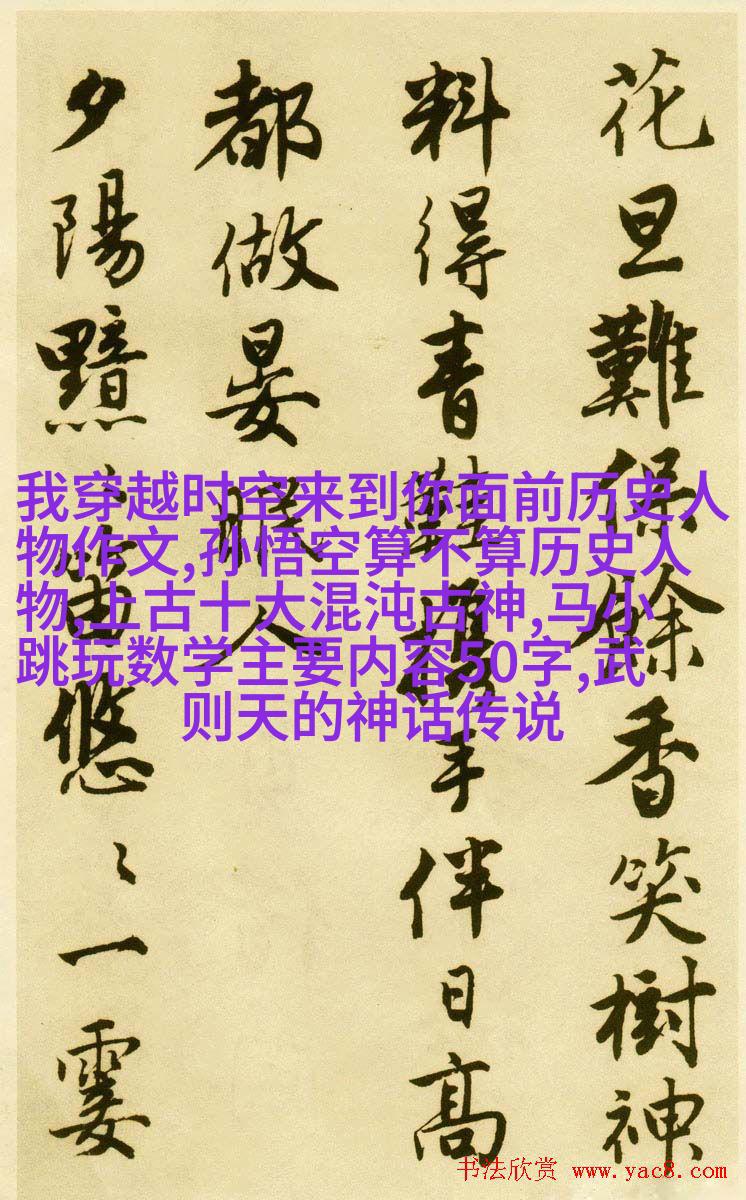 花旦難保餘香笑樹神
料得青鞋攜手伴日高
都做晏眠人
夕陽黯黯笛悠悠一霎
我穿越时空来到你面前历史人
物作文,孙悟空算不算历史人
物,上古十大混沌古神,马小
跳玩数学主要内容50字,武
则天的神话传说
书法欣赏 www.yac8.com